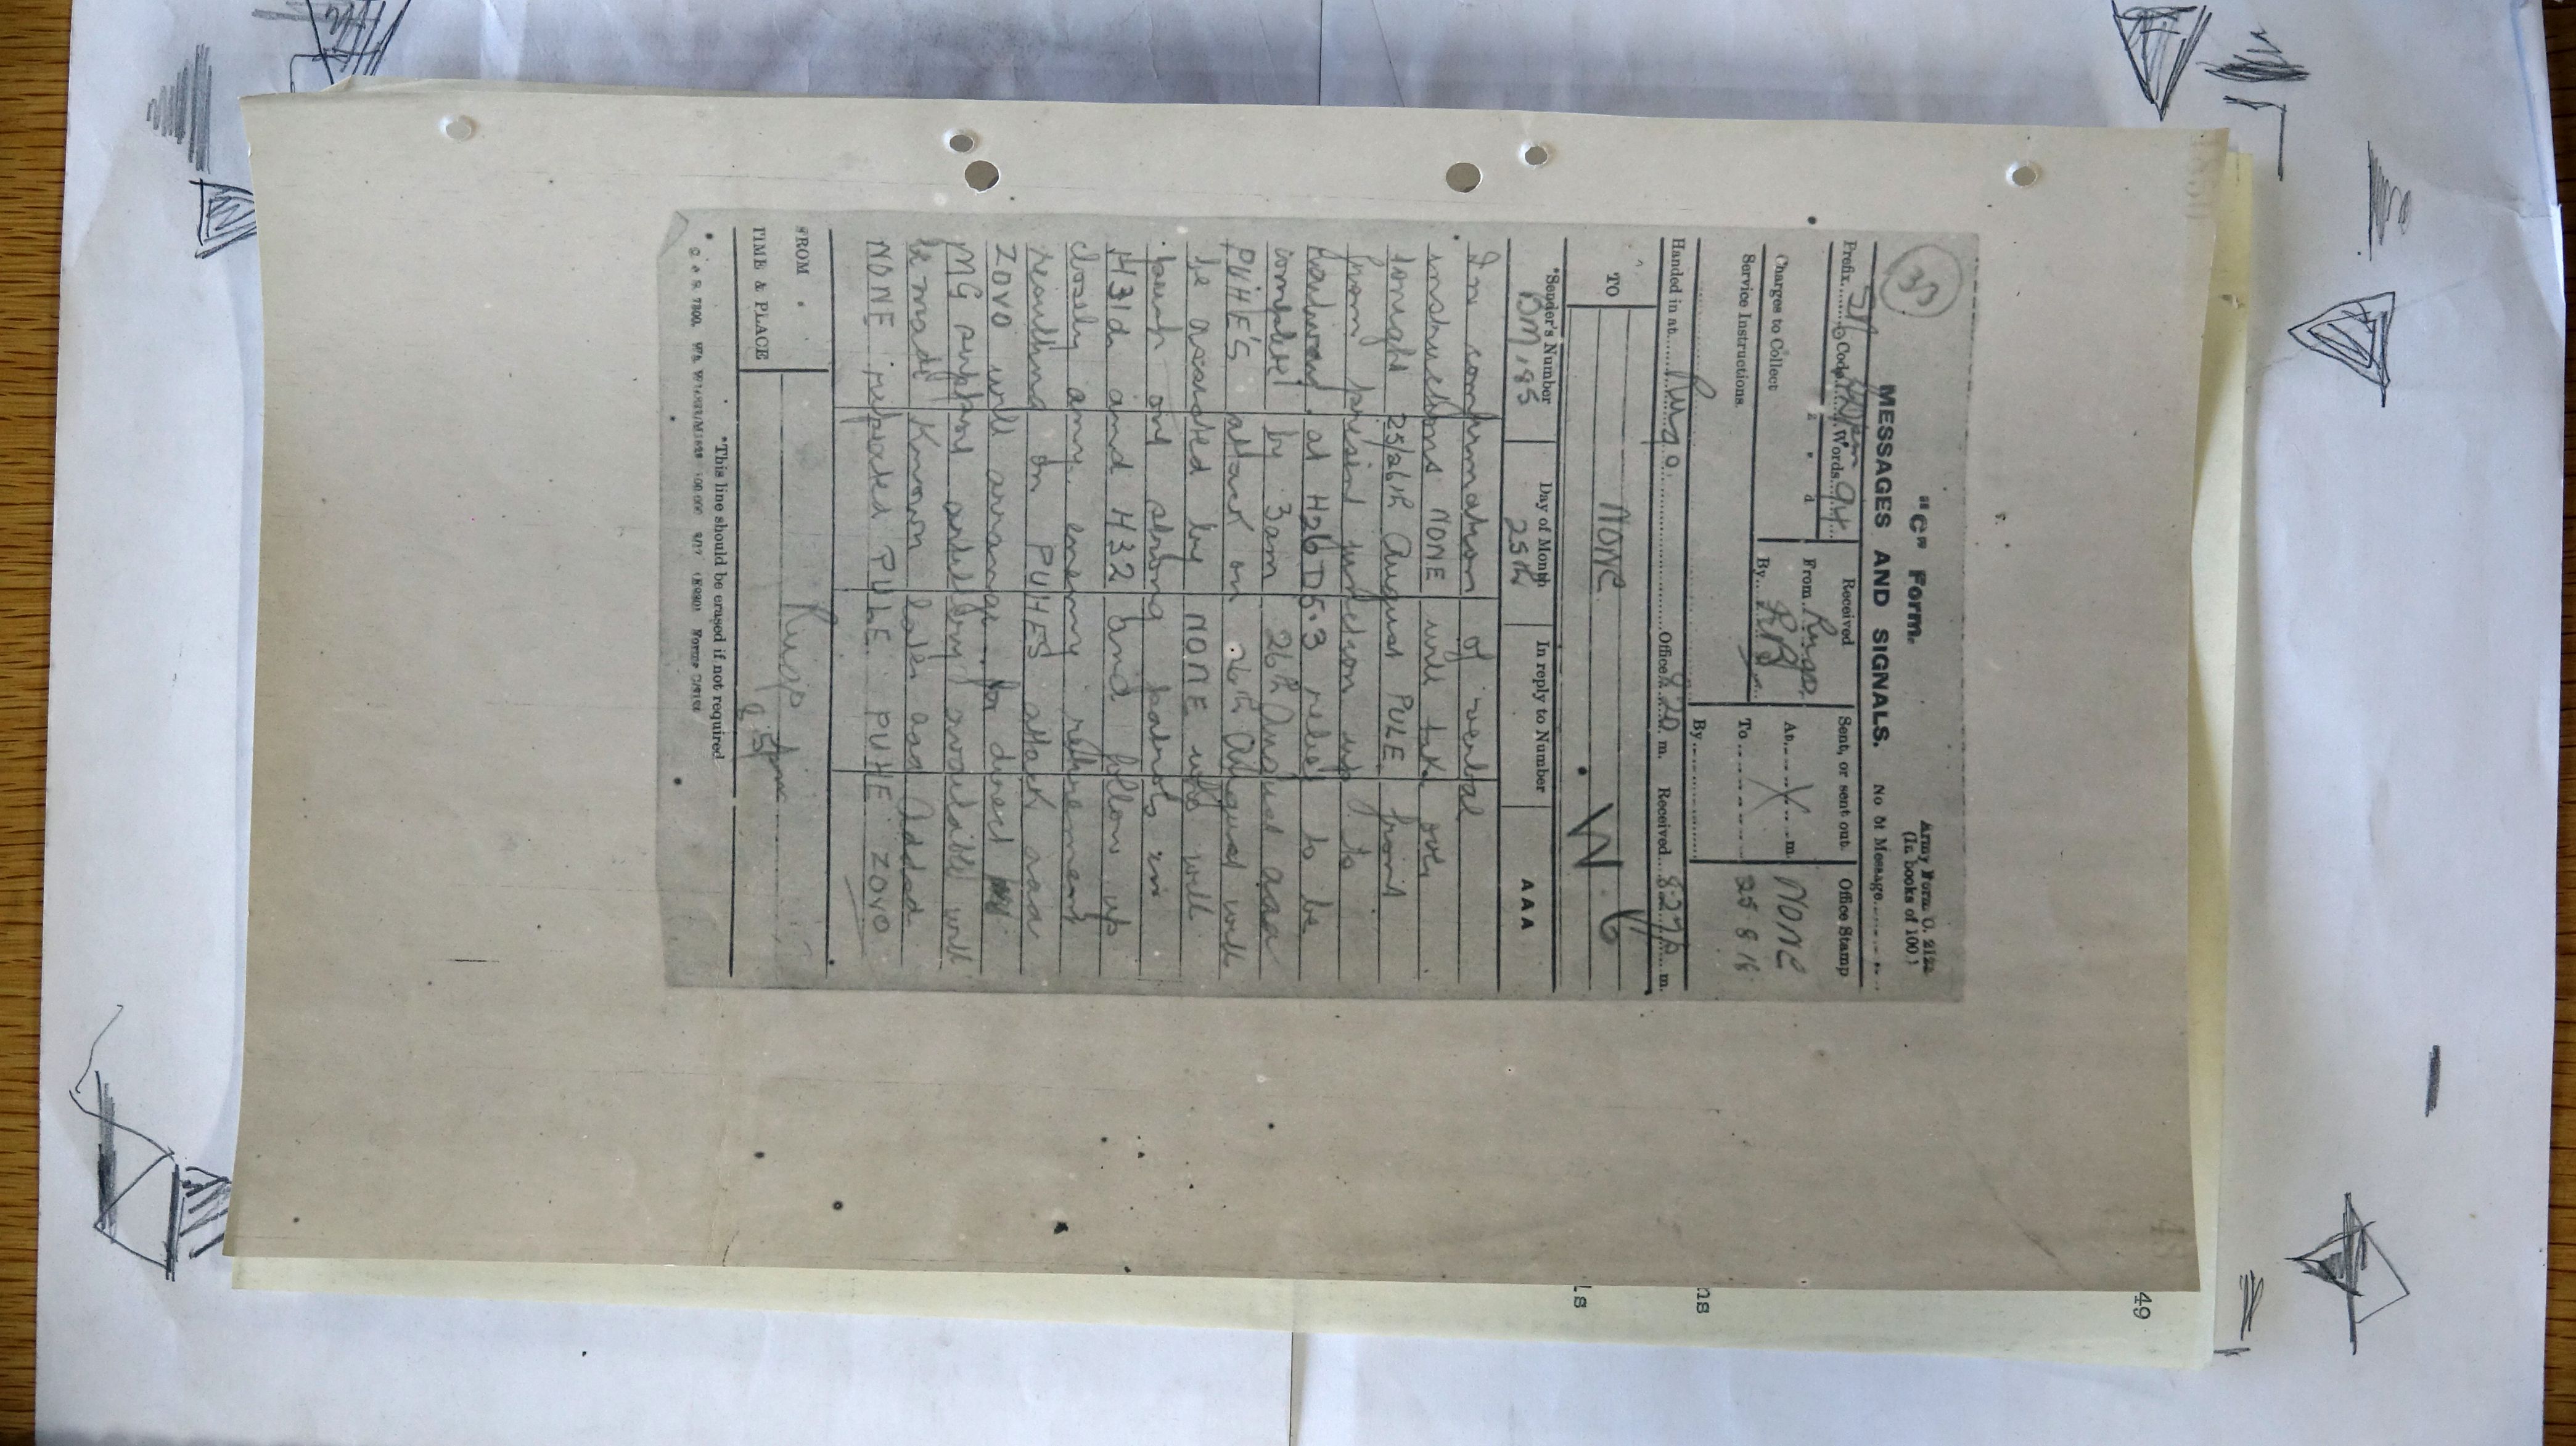 33
"C" Form.
Army Form C. 2123
(In books of 100.)
MESSAGES AND SIGNALS.
No of Message
Prefix Code Words 94
Received
Sent, or sent out
Office Stamp
£ s d
From Ruso
At m.
NONE
Charges to Collect
By
To
25 8 18
Service Instructions
By
Handed in at Ruso Office 820 m. Received 827p m.
TO
NONE
*Sender's Number
Day of Month
In reply to Number
AAA
BM 185
25th
In confirmation of verbal
instructions NONE will take over
tonight 25/26th August PULE front
from present junction up to
Railroad at H26D5.3 relief to be
completed by 3am 26th August aaa
PUHE'S attack on 26th August will
be assisted by NONE who will
push out strong patrols in
H31d and H32 and follow up
closely any enemy retirement
resulting in PUHES attack aaa
ZOVO will arrange for direct
MG support artillery available will
be made known later aaa Added
NONE repeated PULE PUHE ZOVO
FROM
Ruso
TIME & PLACE
*This line should be erased if not required